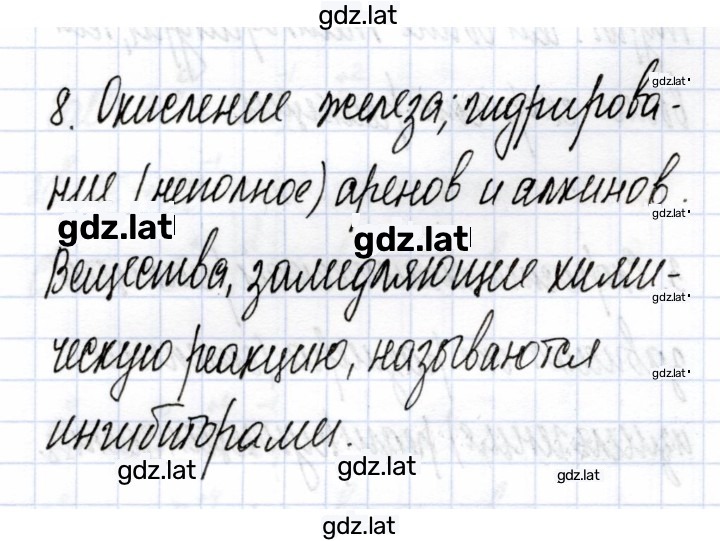 gdz.lat
gdz.lat
8. Окисление железа; гидрирова-
ние (неполное) аренов и алкинов.
gdz.lat
gdz.lat
gdz.lat
Вещества, замедляющие хими-
gdz.lat
ческую реакцию, называются
gdz.lat
ингибиторами.
gdz.lat
gdz.lat
gdz.lat
gdz.lat